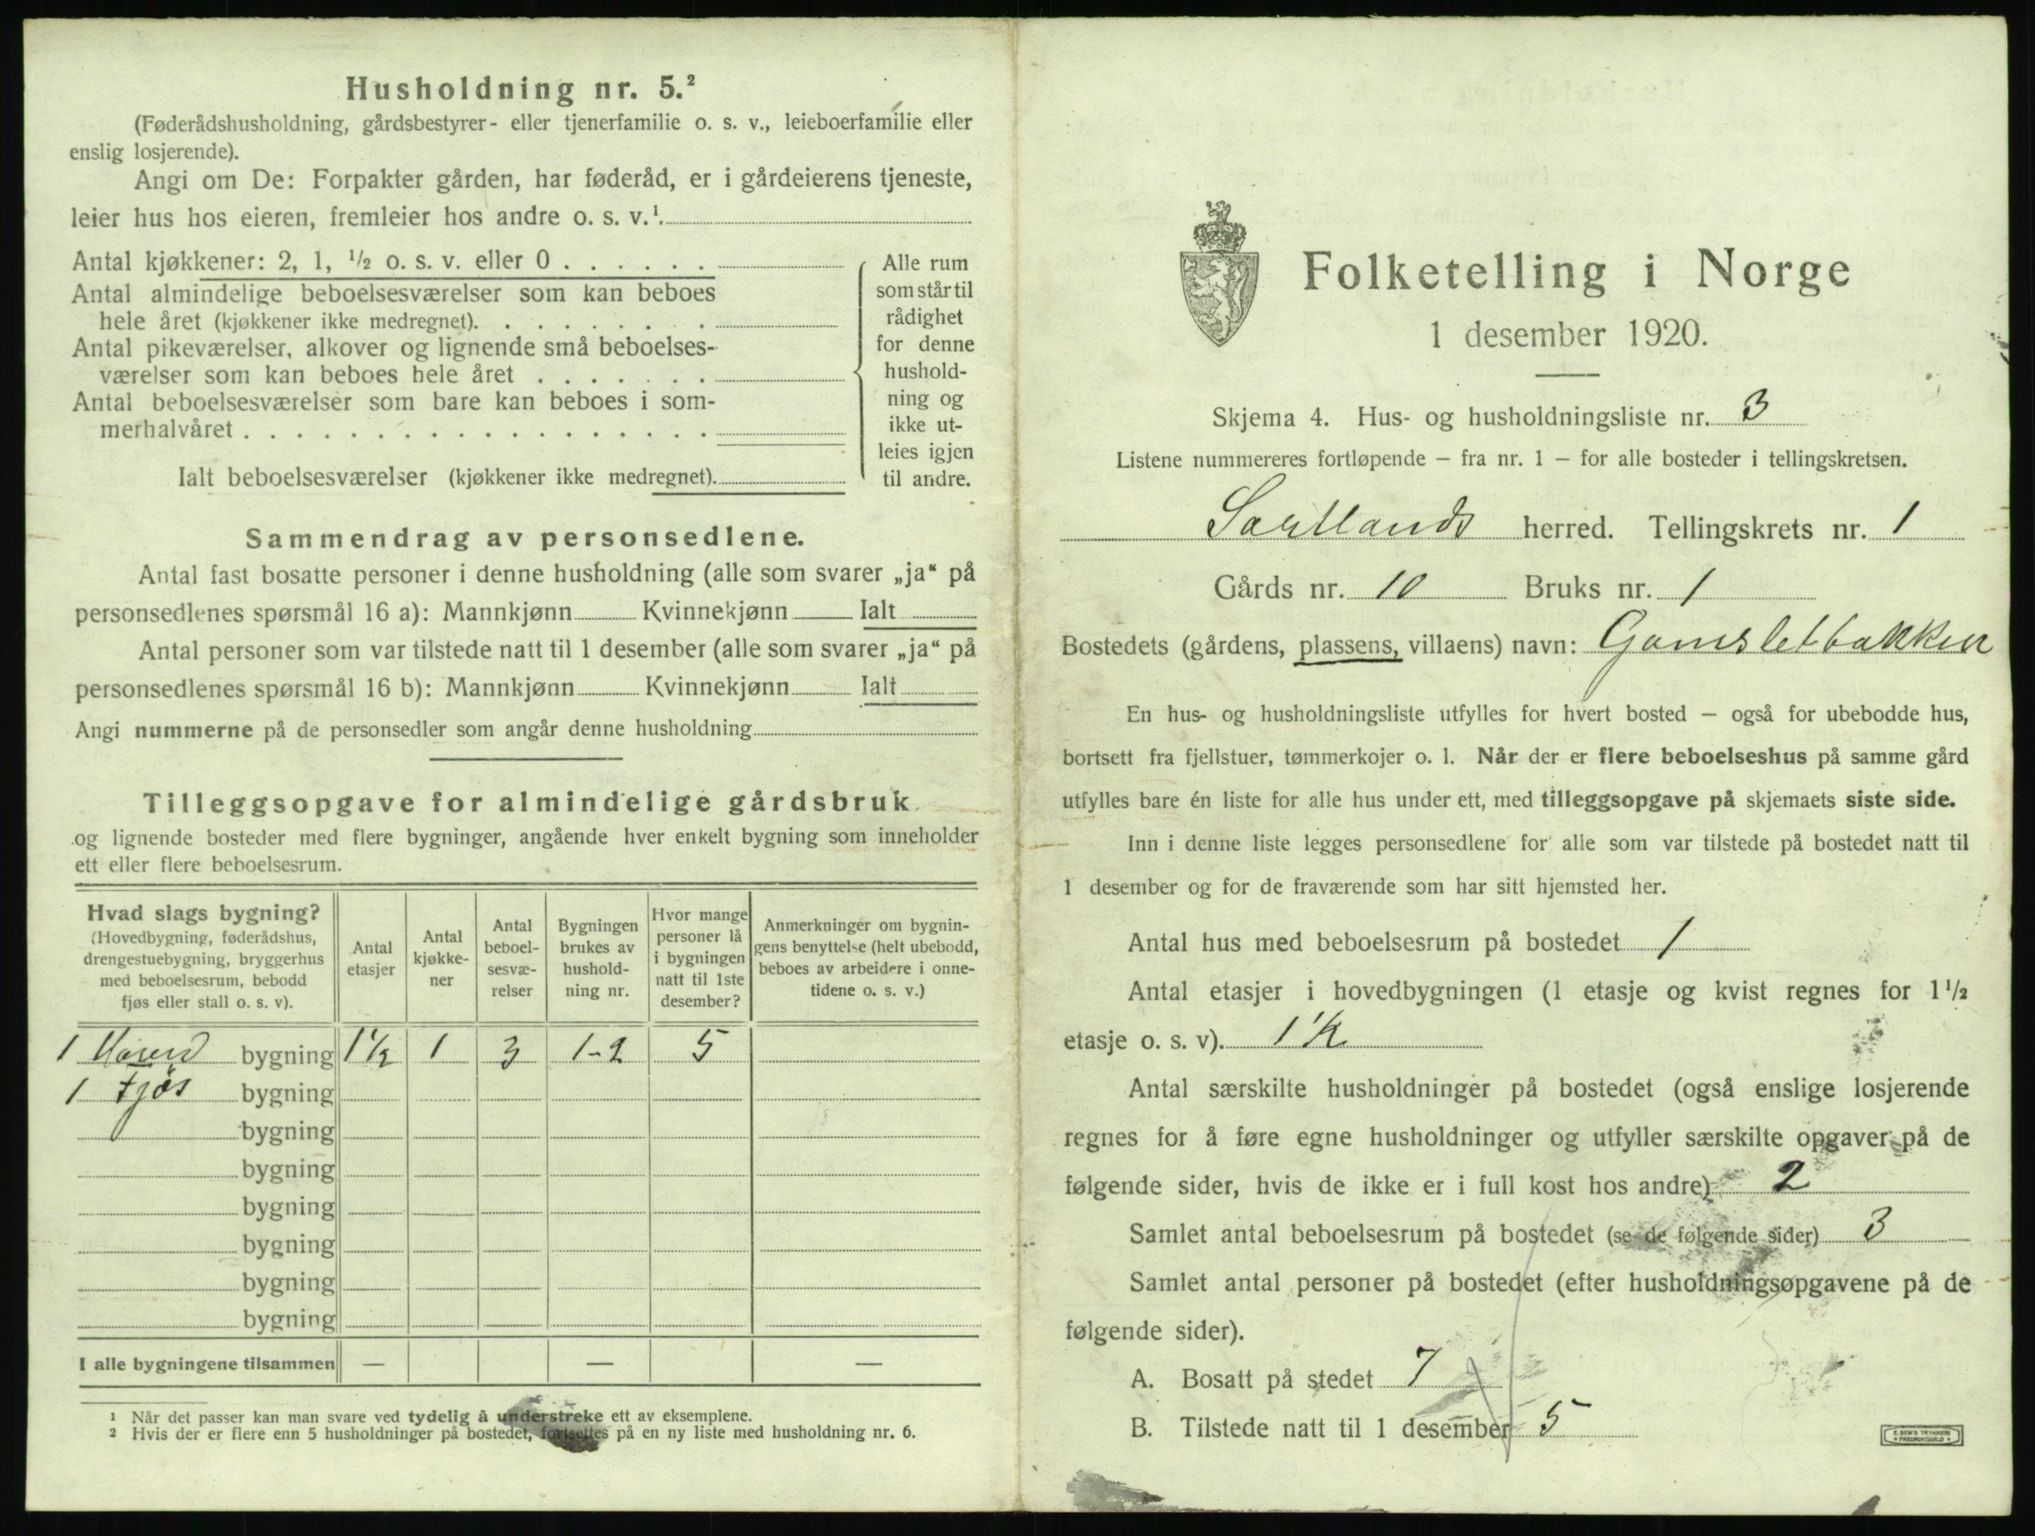 Husholdning nr. 5.²
(Føderådshusholdning, gårdsbestyrer- eller tjenerfamilie o. s. v., leieboerfamilie eller
enslig losjerende).
Angi om De: Forpakter gården, har føderåd, er i gårdeierens tjeneste,
leier hus hos eieren, fremleier hos andre o. s. v.¹
Antal kjøkkener: 2, 1, ½ o. s. v. eller 0 . . . . . .
Antal almindelige beboelsesværelser som kan beboes
hele året (kjøkkener ikke medregnet). . . . . . . . .
Antal pikeværelser, alkover og lignende små beboelses-
værelser som kan beboes hele året . . . . . . .
Antal beboelsesværelser som bare kan beboes i som-
merhalvåret . . . . . . . . . . . . . . . . . .
Ialt beboelsesværelser (kjøkkener ikke medregnet).
Alle rum
som står til
rådighet
for denne
hushold-
ning og
ikke ut-
leies igjen
til andre.
Sammendrag av personsedlene.
Antal fast bosatte personer i denne husholdning (alle som svarer „ja“ på
personsedlenes spørsmål 16 a): Mannkjønn Kvinnekjønn Ialt
Antal personer som var tilstede natt til 1 desember (alle som svarer „ja“ på
personsedlenes spørsmål 16 b): Mannkjønn Kvinnekjønn Ialt
Angi nummerne på de personsedler som angår denne husholdning
Tilleggsopgave for almindelige gårdsbruk
og lignende bosteder med flere bygninger, angående hver enkelt bygning som inneholder
ett eller flere beboelsesrum.
Hvad slags bygning?
(Hovedbygning, føderådshus,
drengestuebygning, bryggerhus
med beboelsesrum, bebodd
fjøs eller stall o. s. v).
Antal
etasjer
Antal
kjøkke-
ner
Antal
beboel-
sesvæ-
relser
Bygningen
brukes av
hushold-
ning nr.
Hvor mange
personer lå
i bygningen
natt til 1ste
desember?
Anmerkninger om bygnin-
gens benyttelse (helt ubebodd,
beboes av arbeidere i onne-
tidene o. s. v.)
1 bygning 1½ 1 3 1-2 5
1 Fjøs bygning
bygning
bygning
bygning
bygning
bygning
bygning
I alle bygningene tilsammen — — —
¹ Når det passer kan man svare ved tydelig å understreke ett av eksemplene.
² Hvis der er flere enn 5 husholdninger på bostedet, fortsettes på en ny liste med husholdning nr. 6.
Folketelling i Norge
1 desember 1920.
Skjema 4. Hus- og husholdningsliste nr. 3
Listene nummereres fortløpende – fra nr. 1 – for alle bosteder i tellingskretsen.
Sortlands herred. Tellingskrets nr. 1
Gårds nr. 10 Bruks nr. 1
Bostedets (gårdens, plassens, villaens) navn: Gamsletbakken
En hus- og husholdningsliste utfylles for hvert bosted – også for ubebodde hus,
bortsett fra fjellstuer, tømmerkojer o. l. Når der er flere beboelseshus på samme gård
utfylles bare én liste for alle hus under ett, med tilleggsopgave på skjemaets siste side.
Inn i denne liste legges personsedlene for alle som var tilstede på bostedet natt til
1 desember og for de fraværende som har sitt hjemsted her.
Antal hus med beboelsesrum på bostedet 1
Antal etasjer i hovedbygningen (1 etasje og kvist regnes for 1½
etasje o. s. v). 1½
Antal særskilte husholdninger på bostedet (også enslige losjerende
regnes for å føre egne husholdninger og utfyller særskilte opgaver på de
følgende sider, hvis de ikke er i full kost hos andre) 2
Samlet antal beboelsesrum på bostedet (se de følgende sider) 3
Samlet antal personer på bostedet (efter husholdningsopgavene på de
følgende sider).
A. Bosatt på stedet 7
B. Tilstede natt til 1 desember 5